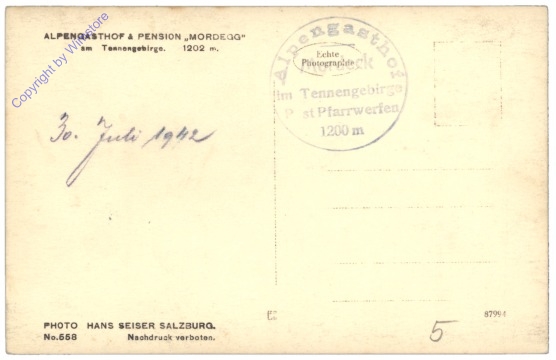 ALPENGASTHOF & PENSION „MORDEGG"
am Tennengebirge. 1202 m.
Copyright by Winstore
Alpengasthof
Echte
Photographie
Mordeck
im Tennengebirge
Post Pfarrwerfen
1200 m
30. Juli 1942
PHOTO HANS SEISER SALZBURG.
No.558 Nachdruck verboten.
87994
5